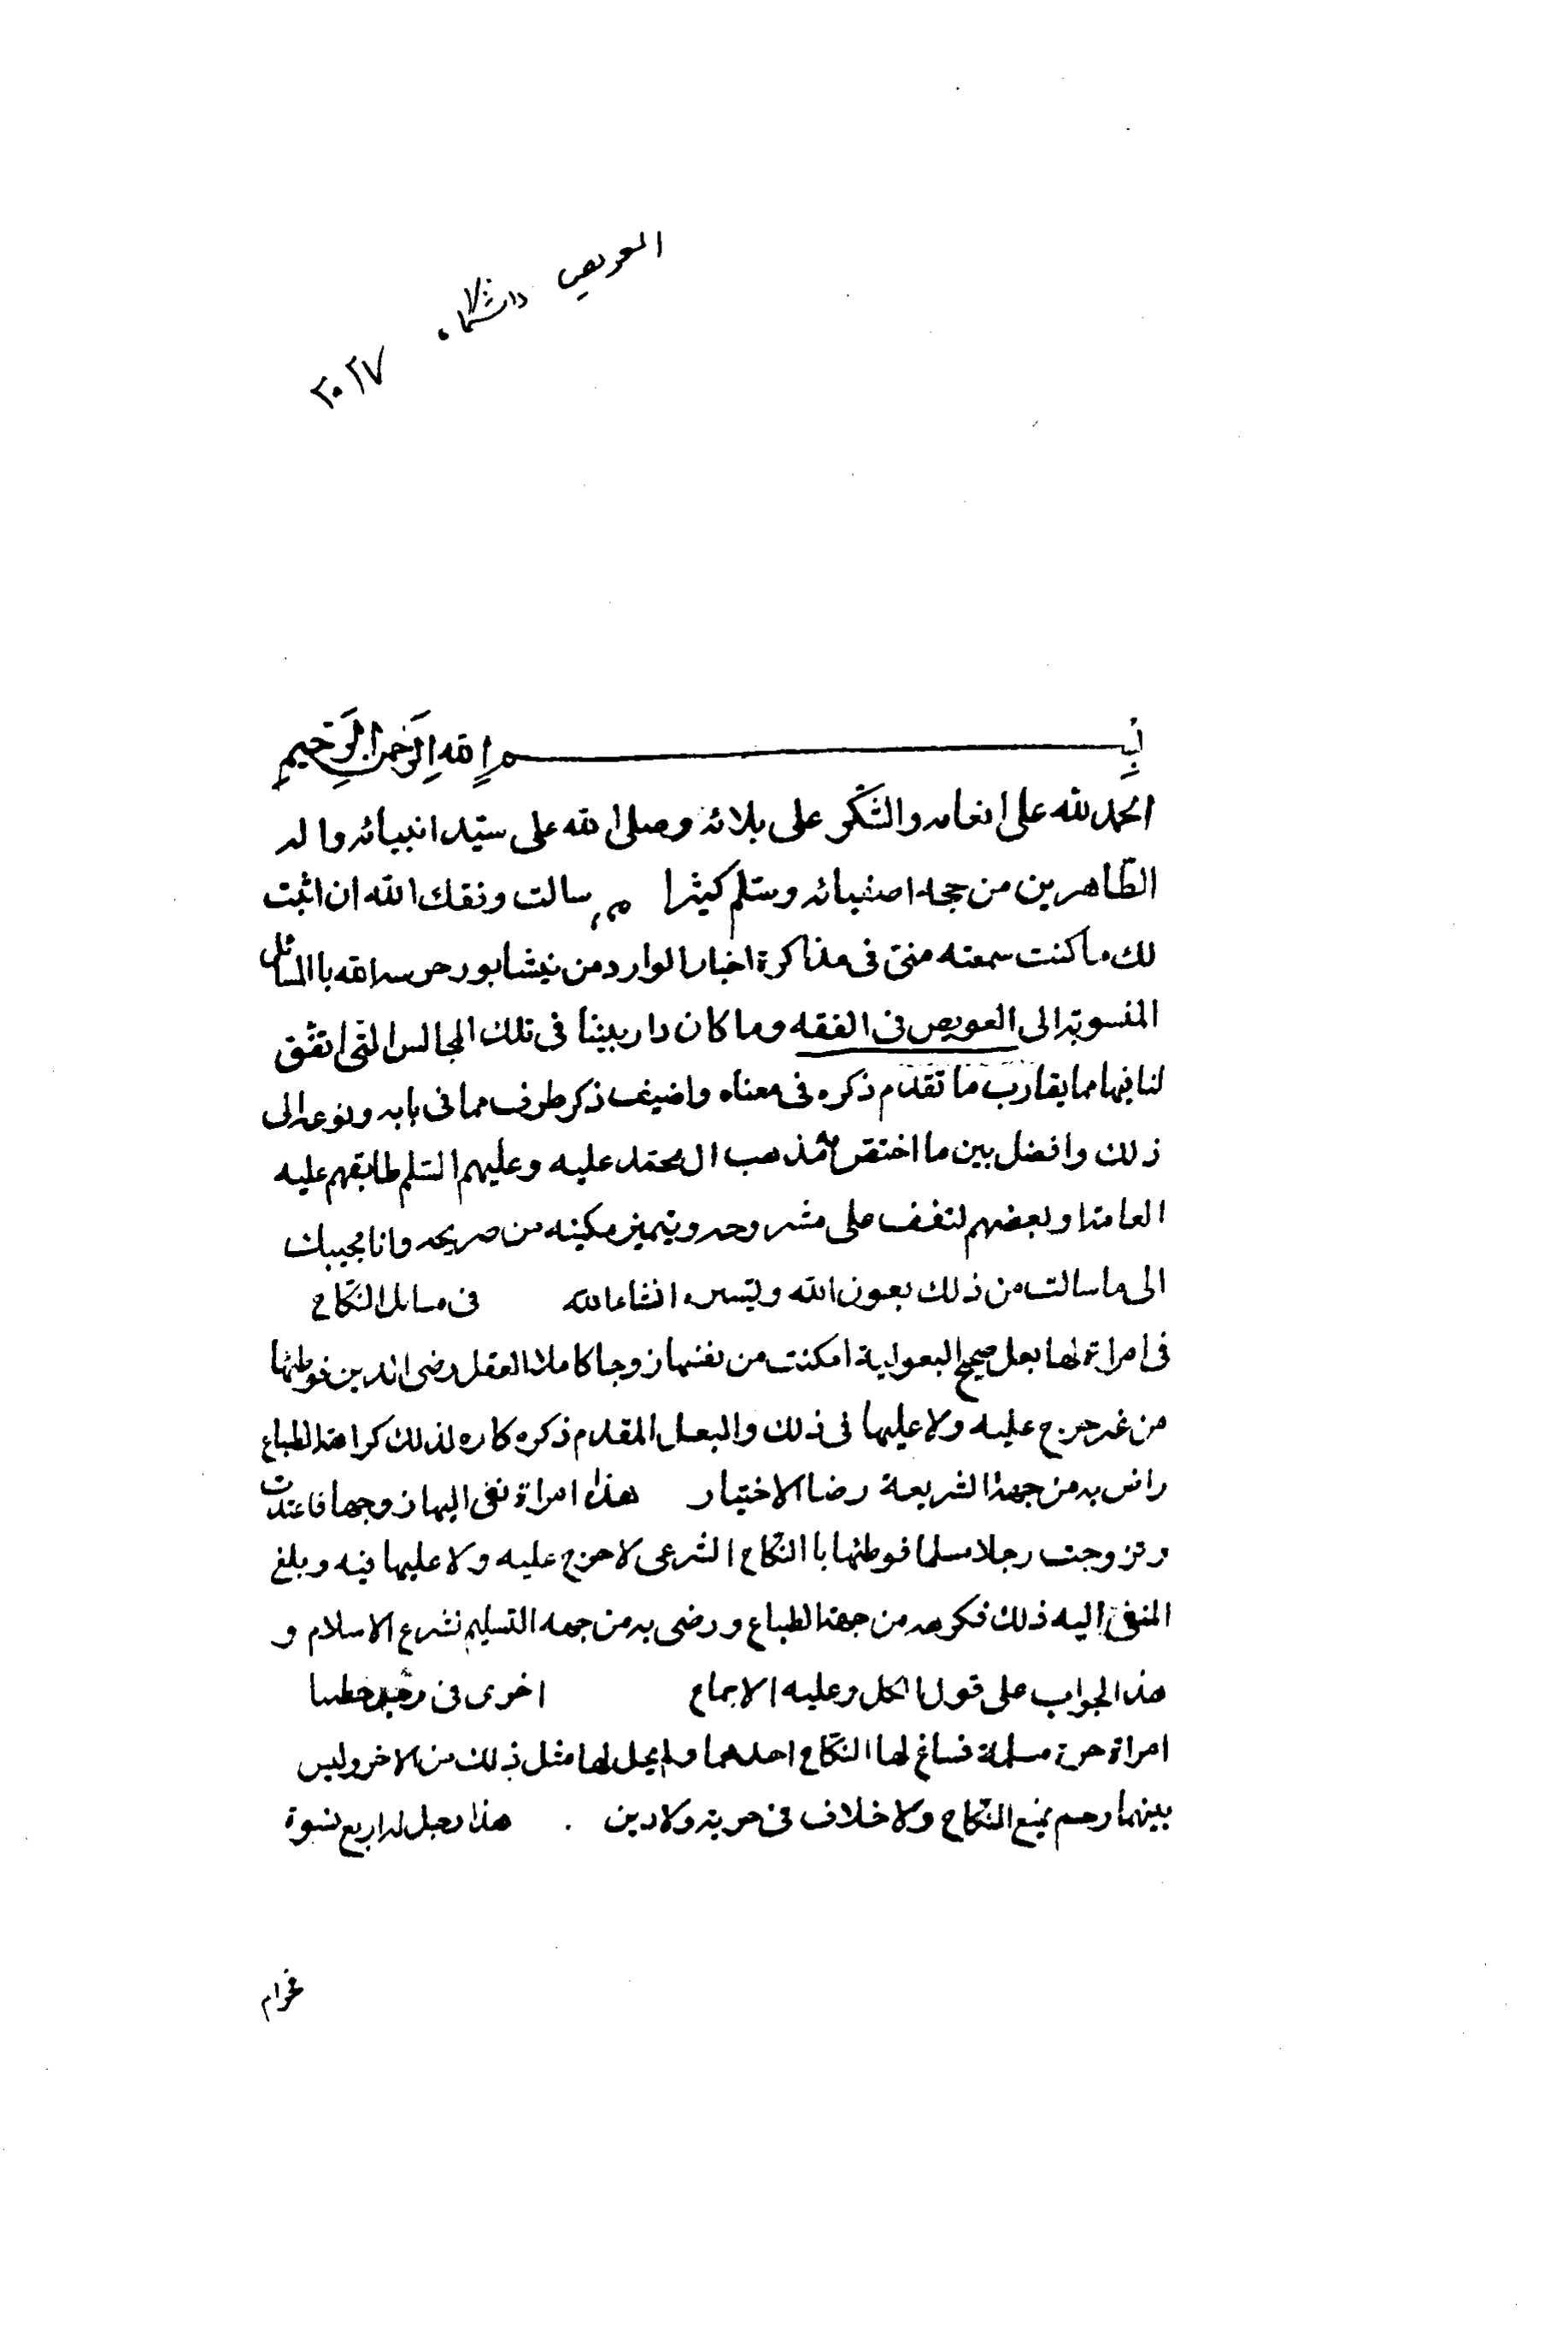 العويص دانشگاه
٢٠٢٧
بسم الله الرحمن الرحيم
الحمد لله على انعامه والشكر على بلائه وصلى الله على سيد انبيائه واله
الطاهرين من حججه اصفيائه وسلم كثيرا سالت وفقك الله ان اثبت
لك ما كنت سمعته منى فى مذاكرة اخبار الوارد من نيشابور حرسه الله با المسائل
المنسوبة الى العويص فى الفقه وما كان دار بيننا فى تلك المجالس التى اتفق
لنا فيها مما يقارب ما تقدم ذكره فى معناه واضيف ذكر طرف مما فى بابه ونوعه الى
ذلك وافصل بين ما اختص به مذهب ال محمد عليه وعليهم السلم طابقهم عليه
العامة او بعضهم لتقف على مشروحه ويتميز من صريحه وانا مجيبك
الى ما سالت من ذلك بعون الله وتيسيره انشاء الله فى مسائل النكاح
فى امراة لها بعل صحيح البعولية امكنت من نفسها زوجا كاملا العقل رضى الدين فوطئها
من غير حرج عليه ولا عليها فى ذلك والبعل المقدم ذكره كاره لذلك كراهة الطباع
راض به من جهة الشريعة رضا الاختيار هذه امراة نعى اليها زوجها فاعتدت
وتزوجت رجلا مسلما فوطئها با النكاح الشرعى لا حرج عليه ولا عليها فيه وبلغ
المنعى اليه ذلك فكرهه من جهة الطباع ورضى به من جهه التسليم لشرع الاسلام و
هذا الجواب على قول الكل وعليه الاجماع اخرى فى رجلين خطبا
امراة حرة مسلمة فساغ لها النكاح احدهما ولم يحل لها مثل ذلك من الاخر وليس
بينهما رحم يمنع النكاح ولا خلاف فى حرية ولا دين . هذا رجل له اربع نسوة